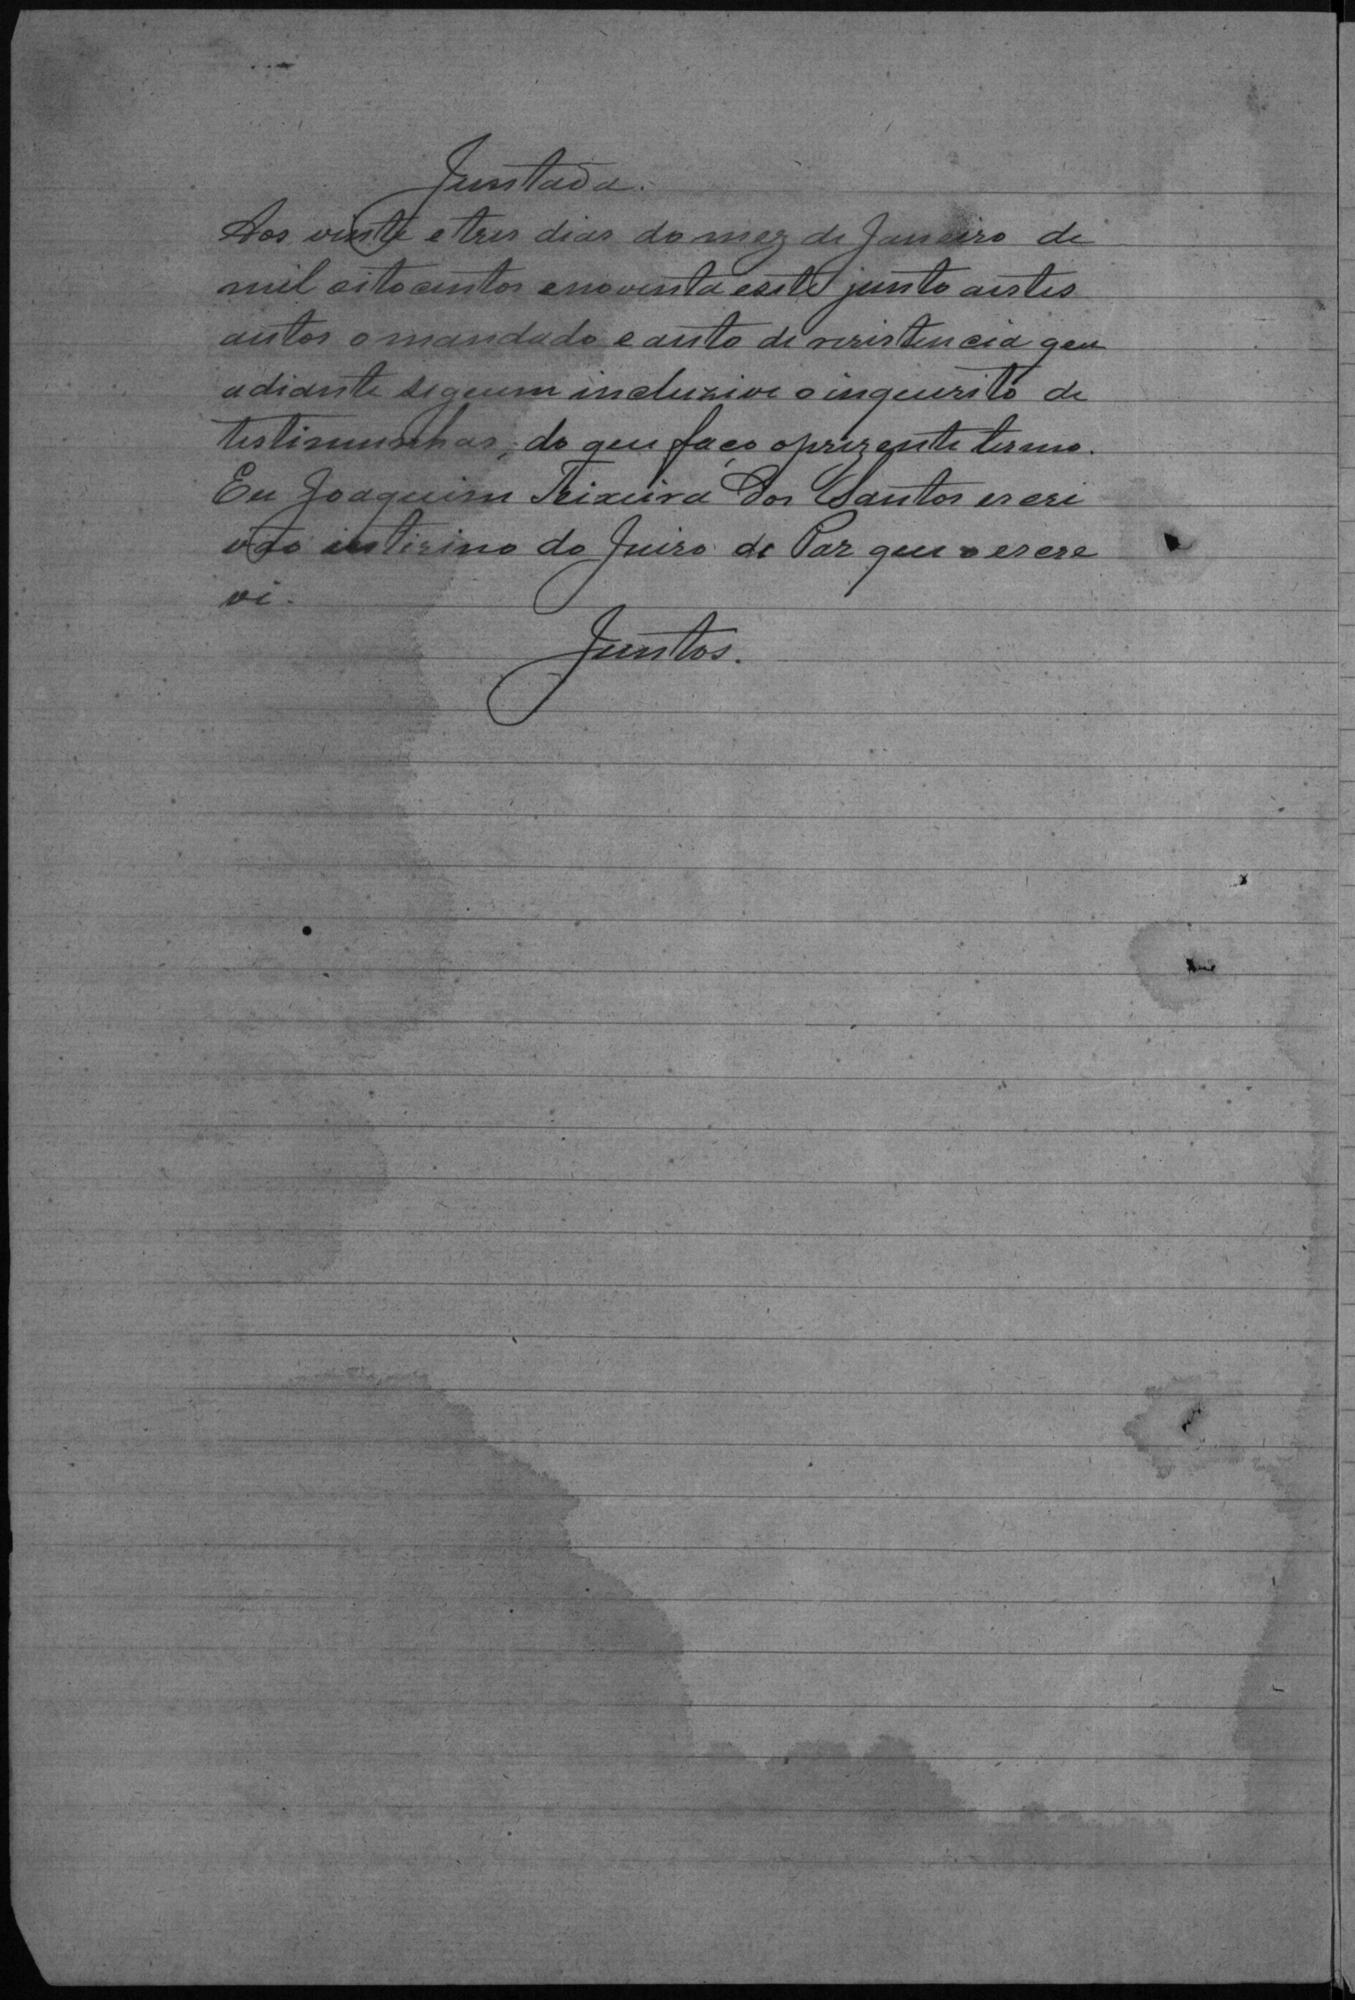 Juntada.
Aos vinte e tres dias do mez de Janeiro de
mil oitocentos enoventa esete junto aestes
autos o mandado e auto de rezistencia que
adiante seguem incluzive o inquerito de
testimunhas, do que faço oprezente termo.
Eu Joaquim Teixeira dos Santos escri
vão interino do Juizo de Paz que o escre
vi.
Juntos.